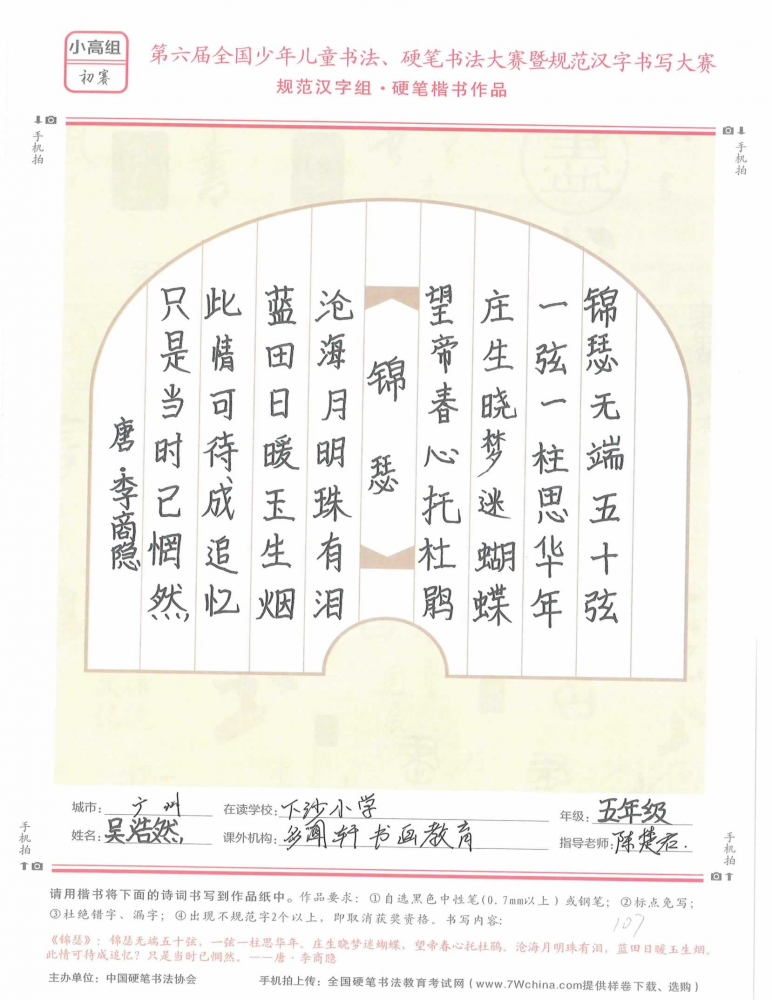 小高组
初赛
第六届全国少年儿童书法、硬笔书法大赛暨规范汉字书写大赛
规范汉字组·硬笔楷书作品
手机拍
手机拍
锦瑟无端五十弦
一弦一柱思华年
庄生晓梦迷蝴蝶
望帝春心托杜鹃
锦瑟
沧海月明珠有泪
蓝田日暖玉生烟
此情可待成追忆
只是当时已惘然
唐·李商隐
城市：广州 在读学校：下沙小学 年级：五年级
姓名：吴浩然 课外机构：多闻轩书画教育 指导老师：陈楚君.
手机拍
手机拍
请用楷书将下面的诗词书写到作品纸中。作品要求：①自选黑色中性笔(0.7mm以上)或钢笔；②标点免写；
③杜绝错字、漏字；④出现不规范字2个以上，即取消获奖资格。书写内容：
107
《锦瑟》：锦瑟无端五十弦，一弦一柱思华年。庄生晓梦迷蝴蝶，望帝春心托杜鹃。沧海月明珠有泪，蓝田日暖玉生烟。
此情可待成追忆？只是当时已惘然。——唐·李商隐
主办单位：中国硬笔书法协会 手机拍上传：全国硬笔书法教育考试网(www.7Wchina.com提供样卷下载、选购)